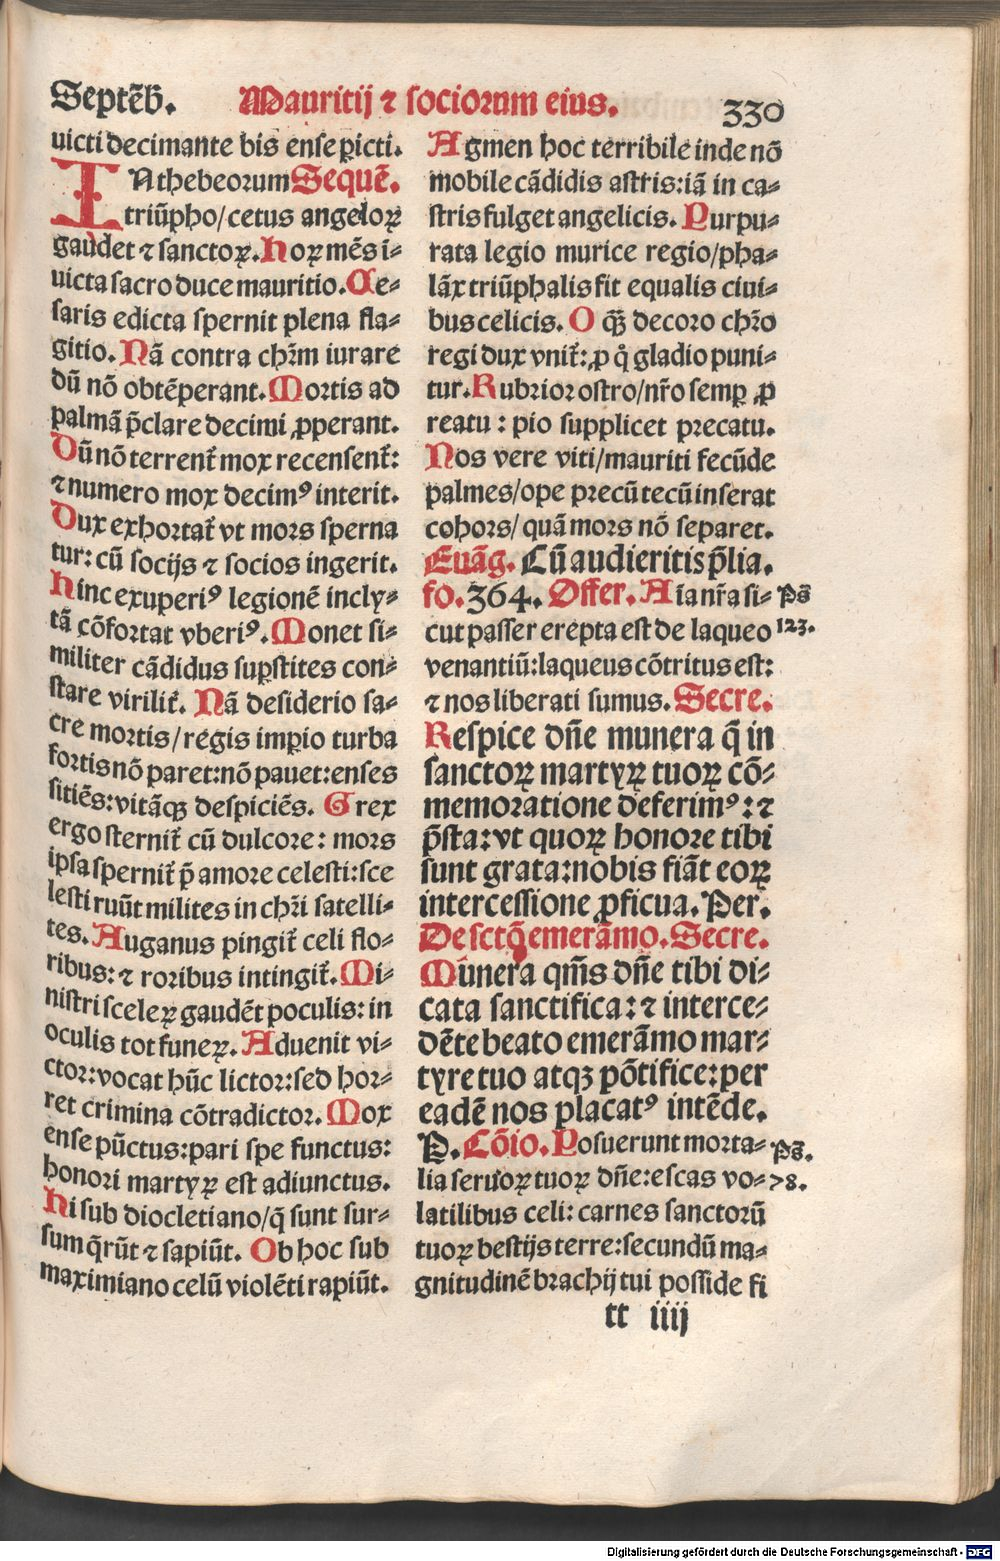 Septēb. Mauritij ⁊ sociorum eius. 330
uicti decimante bis ense ꝑicti.
IN thebeorum Sequē.
triūpho/cetus angeloꝝ
gaudet ⁊ sanctoꝝ. Hoꝝ mēs i-
uicta sacro duce mauritio. Ce-
saris edicta spernit plena fla-
gitio. Nā contra chr̄m iurare
dū nō obtēperant. Mortis ad
palmā p̄clare decimi ꝓperant.
Dū nō terrent̄ mox recensent̄:
⁊ numero mox decimꝰ interit.
Dux exhortat̄ vt mors sperna
tur: cū socijs ⁊ socios ingerit.
Hinc exuperiꝰ legionē incly-
tā cōfortat vberiꝰ. Monet si-
militer cādidus suꝑstites con-
stare virilit̄. Nā desiderio sa-
cre mortis/regis imꝑio turba
fortis nō paret: nō pauet: enses
sitiēs: vitāqꝫ despiciēs. Grex
ergo sternit̄ cū dulcore: mors
ipsa spernit̄ p̄ amore celesti: sce
lesti ruūt milites in chr̄i satelli-
tes. Auganus pingit̄ celi flo-
ribus: ⁊ roribus intingit̄. Mi-
nistri sceleꝝ gaudēt poculis: in
oculis tot funeꝝ. Aduenit vi-
ctor: vocat hūc lictor: sed hor-
ret crimina cōtradictor. Mox
ense pūctus: pari spe functus:
honori martyꝝ est adiunctus.
Hi sub diocletiano/q̄ sunt sur-
sum q̄rūt ⁊ sapiūt. Ob hoc sub
maximiano celū violēti rapiūt.
Agmen hoc terribile inde nō
mobile cādidis astris: iā in ca-
stris fulget angelicis. Purpu-
rata legio murice regio/pha-
lāx triūphalis fit equalis ciui-
bus celicis. O qꝫ̄ decoro chr̄o
regi dux vnit̄: ꝓ q̊ gladio puni-
tur. Rubrior ostro/nr̄o semꝑ ꝓ
reatu: pio supplicet precatu.
Nos vere viti/mauriti fecūde
palmes/ope precū tecū inserat
cohors/quā mors nō separet.
Euāg. Cū audieritis p̄lia.
fo. 364. Offer. Aīa nr̄a si- Ps̄
cut passer erepta est de laqueo 123.
venantiū: laqueus cōtritus est:
⁊ nos liberati sumus. Secre.
Respice dn̄e munera q̄ in
sanctoꝝ martyꝝ tuoꝝ cō-
memoratione deferimꝰ: ⁊
p̄sta: vt quoꝝ honore tibi
sunt grata: nobis fiāt eoꝝ
intercessione ꝓficua. Per.
De sctō emerāmo. Secre.
Munera qm̄s dn̄e tibi di-
cata sanctifica: ⁊ interce-
dēte beato emerāmo mar-
tyre tuo atqꝫ pōtifice: per
eadē nos placatꝰ intēde.
P. Cōio. Posuerunt morta- Ps̄.
lia seruoꝝ tuoꝝ dn̄e: escas vo- 78.
latilibus celi: carnes sanctorū
tuoꝝ bestijs terre: secundū ma-
gnitudinē brachij tui posside fi
tt iiij
Digitalisierung gefördert durch die Deutsche Forschungsgemeinschaft - DFG